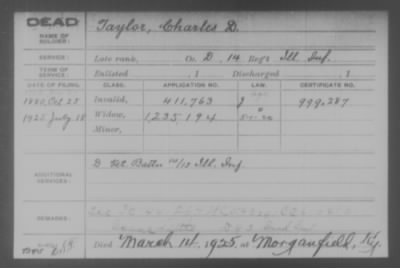 DEAD
NAME OF SOLDIER:
Taylor, Charles D.
SERVICE:
Late rank, Co. D, 14 Reg't Ill. Inf.
TERM OF SERVICE:
Enlisted , 1 Discharged , 1
DATE OF FILING. CLASS. APPLICATION NO. LAW. CERTIFICATE NO.
1880, Oct 25 Invalid, 411,763 999.287
1925 July 18 Widow, 1,235,194
Minor,
ADDITIONAL SERVICES:
D Batt'n Ill. Inf
REMARKS:
Died March 14, 1925, at Morganfield, Ky.